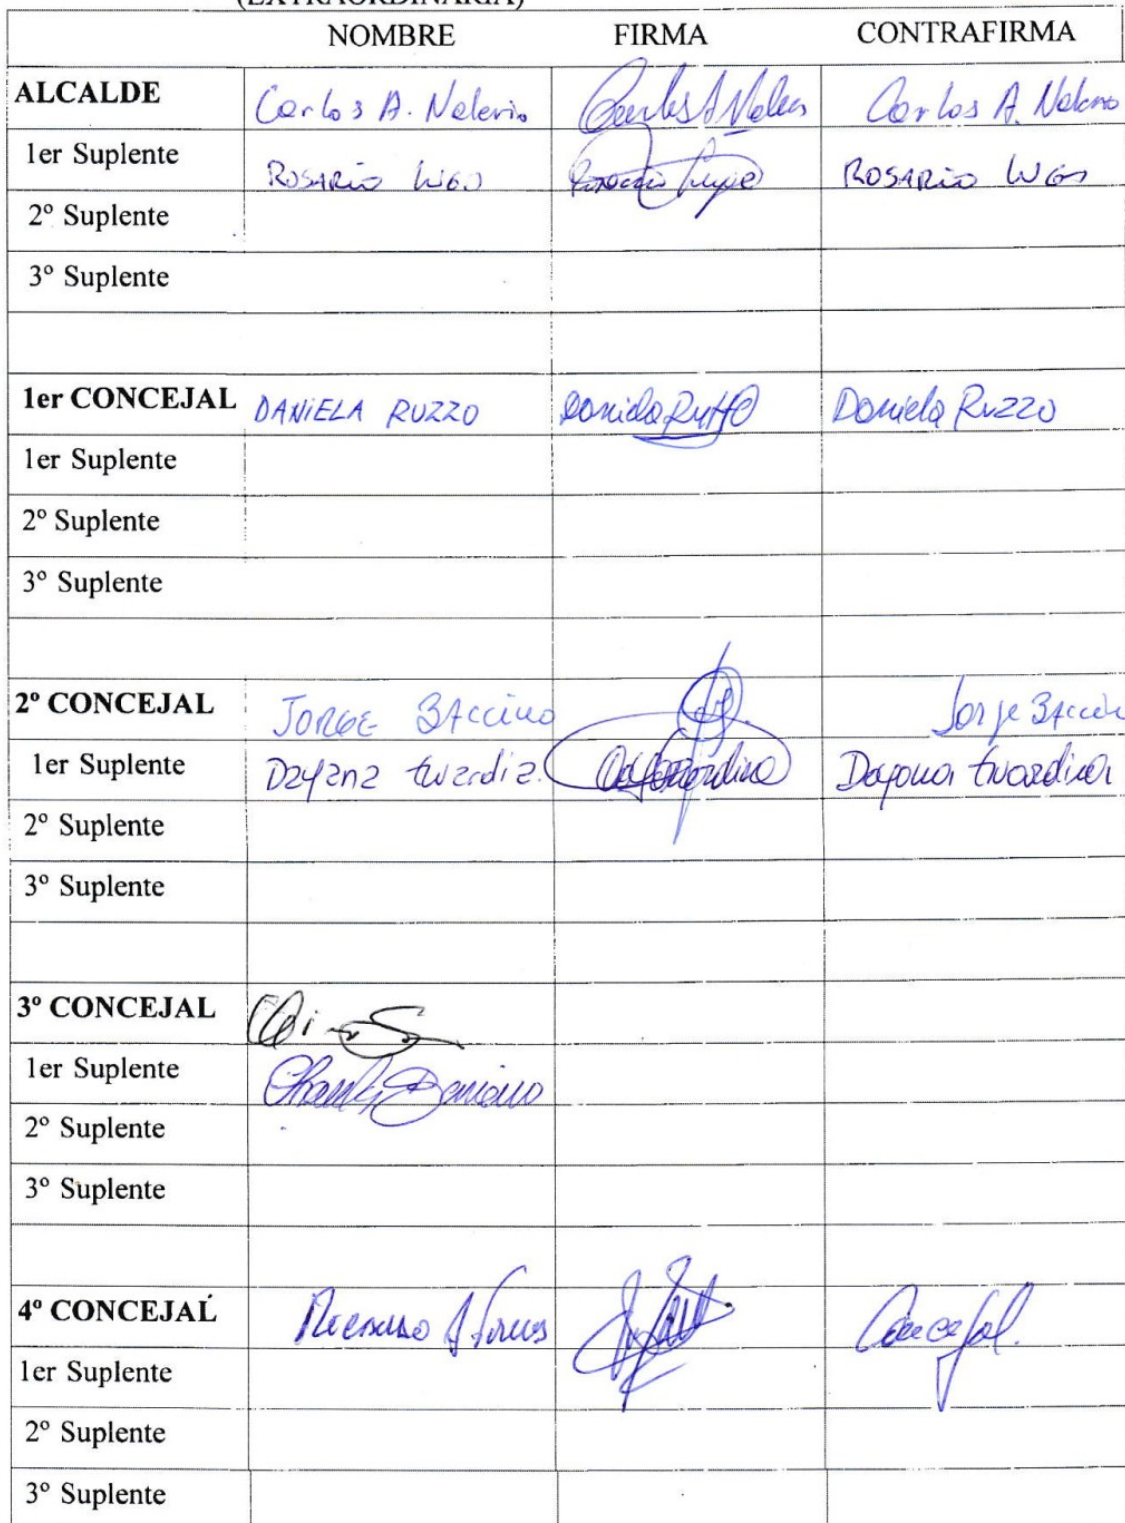 (EXTRAORDINARIA)
NOMBRE FIRMA CONTRAFIRMA
ALCALDE Carlos A. Nalerio Carlos A. Nalerio
1er Suplente ROSARIO LUGO ROSARIO LUGO
2º Suplente
3º Suplente
1er CONCEJAL DANIELA RUZZO Daniela Ruzzo Daniela Ruzzo
1er Suplente
2º Suplente
3º Suplente
2º CONCEJAL JORGE BAccino Jorge
1er Suplente Dayana twardia. Dayana twardica
2º Suplente
3º Suplente
3º CONCEJAL
1er Suplente
2º Suplente
3º Suplente
4º CONCEJAL Concejal.
1er Suplente
2º Suplente
3º Suplente